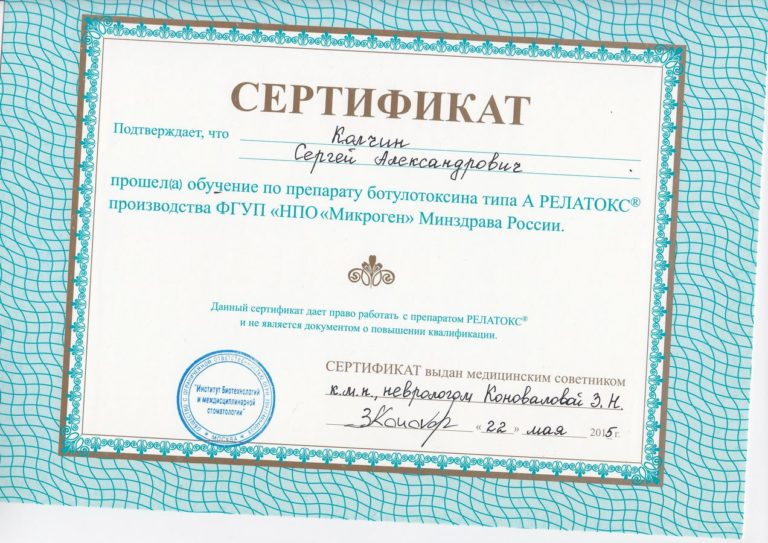 СЕРТИФИКАТ
Подтверждает, что Колчин
Сергей Александрович
прошел(а) обучение по препарату ботулотоксина типа А РЕЛАТОКС®
производства ФГУП «НПО «Микроген» Минздрава России.
Данный сертификат дает право работать с препаратом РЕЛАТОКС®
и не является документом о повышении квалификации.
СЕРТИФИКАТ выдан медицинским советником
к.м.н., неврологом Коноваловой З.Н.
«22» мая 2015г.
"Институт Биотехнологий
и междисциплинарной
стоматологии"
МОСКВА